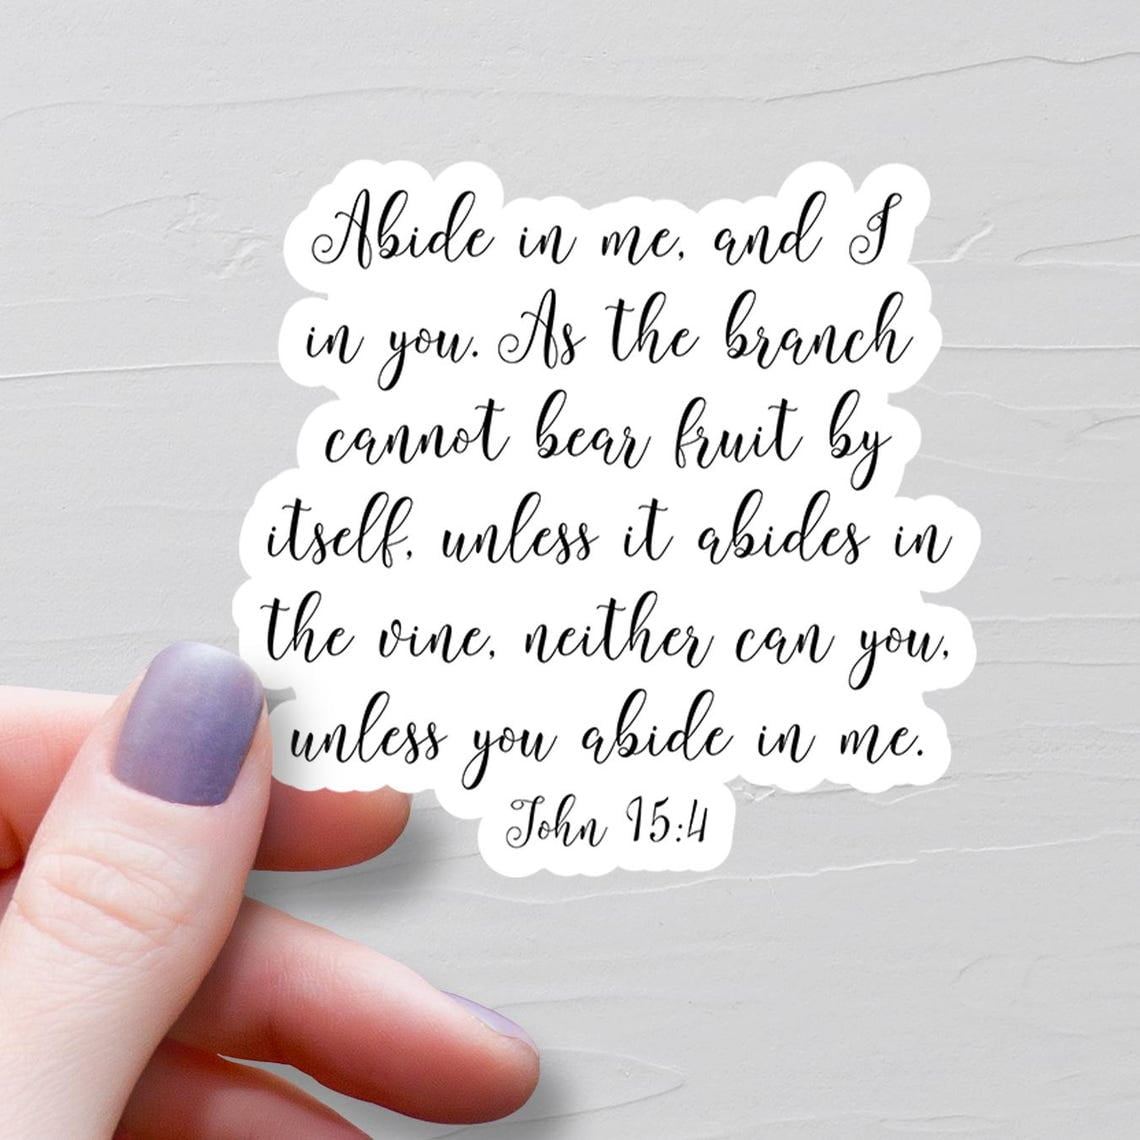 Abide in me, and I
in you. As the branch
cannot bear fruit by
itself, unless it abides in
the vine, neither can you,
unless you abide in me.
John 15:4